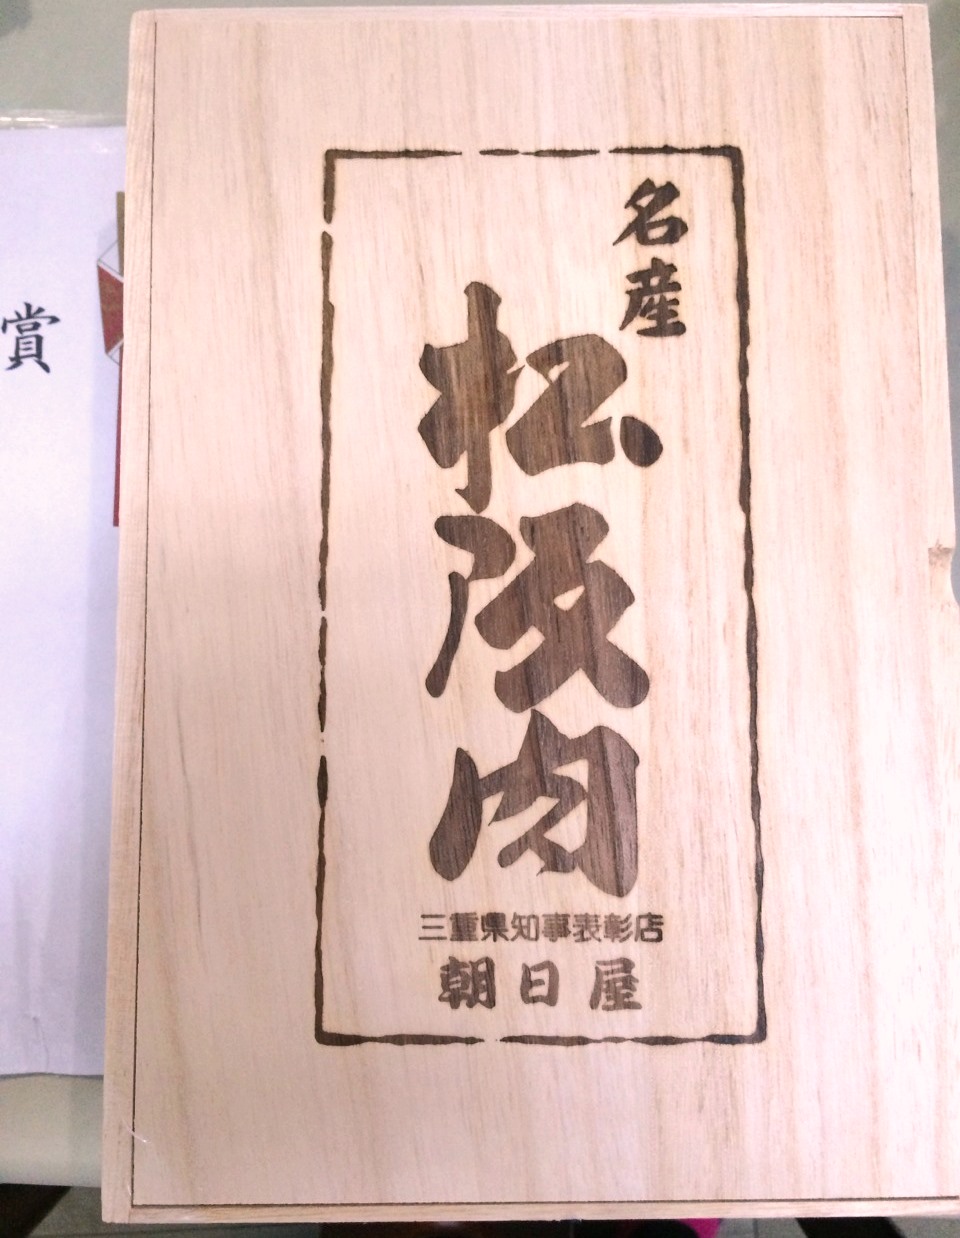 名産
松阪肉
三重県知事表彰店
朝日屋
賞